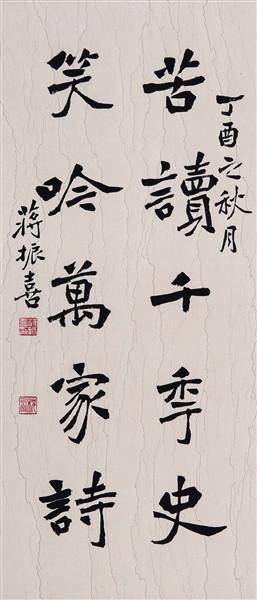 丁酉之秋月
苦讀千年史
笑吟萬家詩
蔣振喜